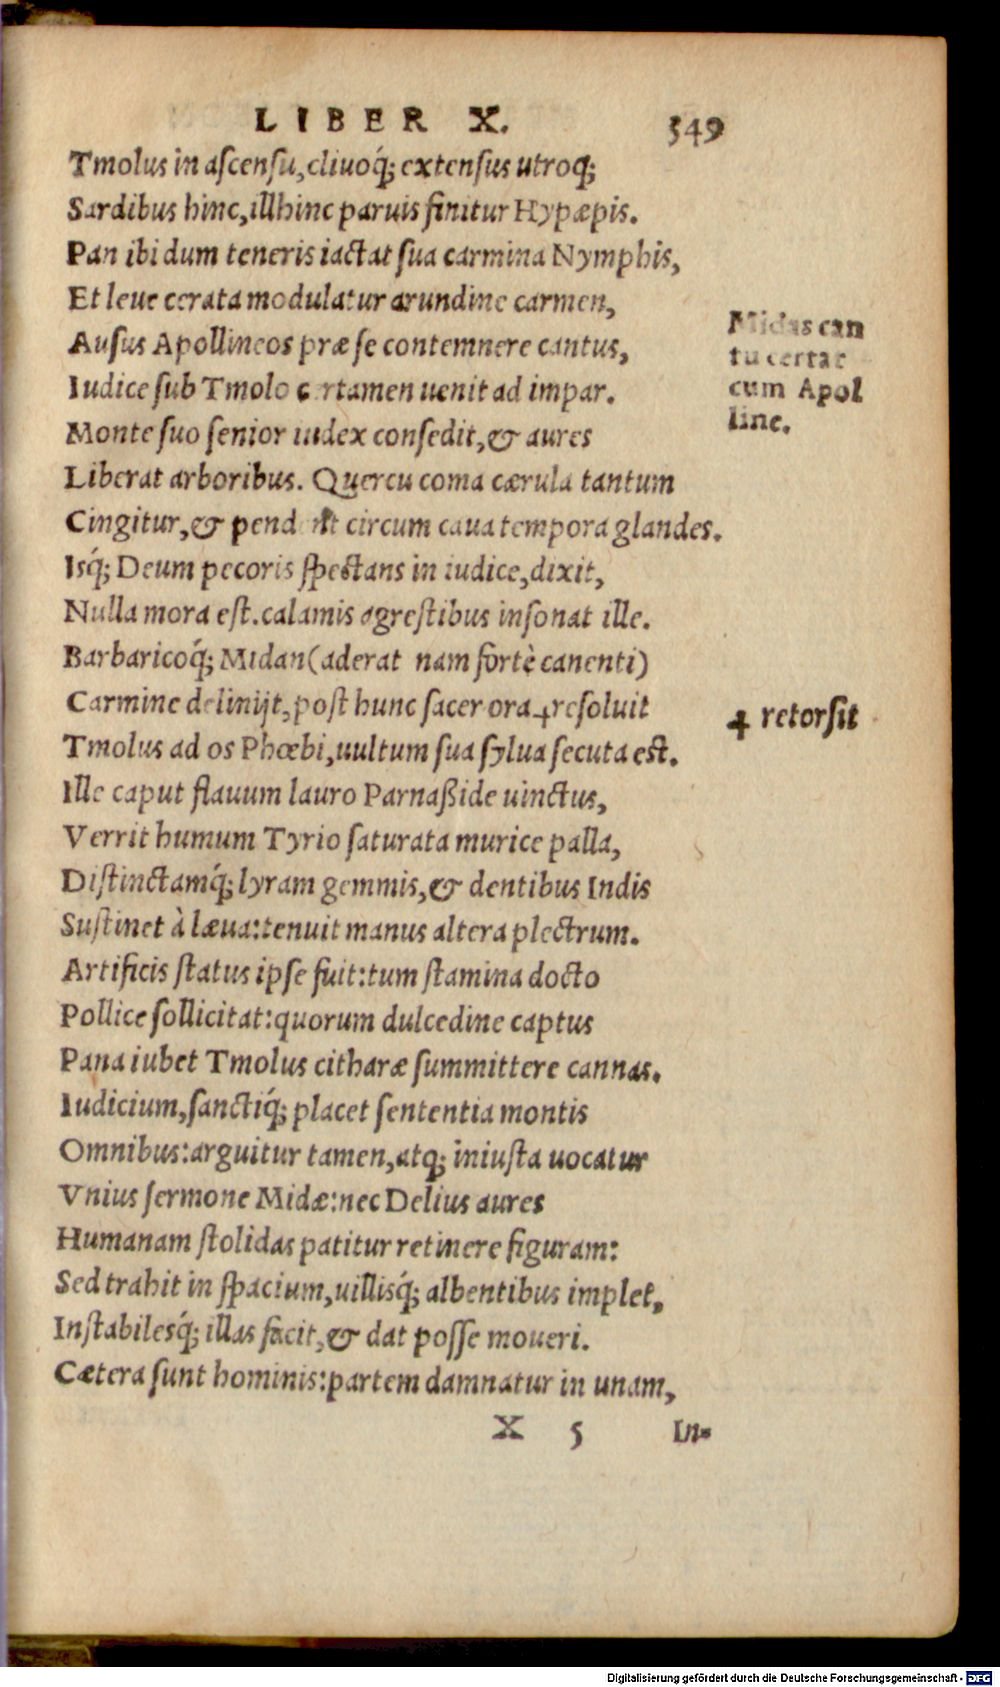 LIBER X. 349
Tmolus in ascensu, cliuoq́; extensus utroq;
Sardibus hinc, illhinc paruis finitur Hypæpis.
Pan ibi dum teneris iactat sua carmina Nymphis,
Et leue cerata modulatur arundine carmen,
Ausus Apollineos præ se contemnere cantus,
Iudice sub Tmolo certamen uenit ad impar.
Monte suo senior iudex consedit, & aures
Liberat arboribus. Quercu coma cærula tantum
Cingitur, & pendent circum caua tempora glandes.
Isq́; Deum pecoris spectans in iudice, dixit,
Nulla mora est. calamis agrestibus insonat ille.
Barbaricoq́; Midan (aderat nam fortè canenti)
Carmine delinijt, post hunc sacer ora ɟ resoluit
Tmolus ad os Phœbi, uultum sua sylua secuta est.
Ille caput flauum lauro Parnaßide uinctus,
Verrit humum Tyrio saturata murice palla,
Distinctamq́; lyram gemmis, & dentibus Indis
Sustinet à læua: tenuit manus altera plectrum.
Artificis status ipse fuit: tum stamina docto
Pollice sollicitat: quorum dulcedine captus
Pana iubet Tmolus citharæ summittere cannas.
Iudicium, sanctiq́; placet sententia montis
Omnibus: arguitur tamen, atq; iniusta uocatur
Vnius sermone Midæ: nec Delius aures
Humanam stolidas patitur retinere figuram:
Sed trahit in spacium, uillisq́; albentibus implet,
Instabilesq́; illas facit, & dat posse moueri.
Cætera sunt hominis: partem damnatur in unam,
X 5 In-
Midas can
tu certat
cum Apol
line.
ɟ retorsit
Digitalisierung gefördert durch die Deutsche Forschungsgemeinschaft - DFG